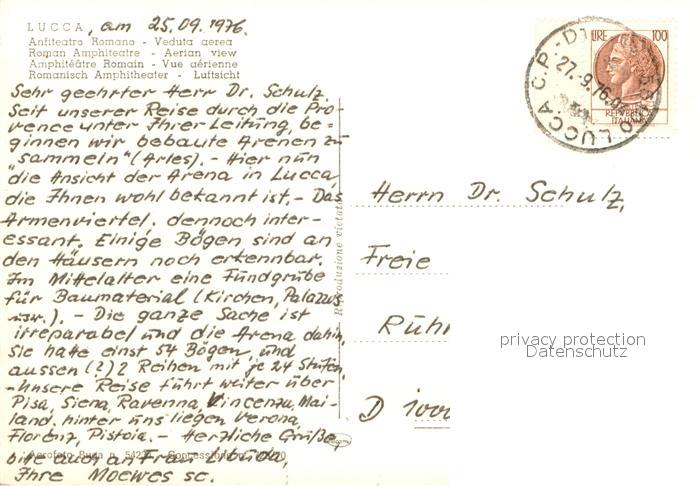 LUCCA, am 25.09.1976.
Anfiteatro Romano - Veduta aerea
Roman Amphiteatre - Aerian view
Amphitéâtre Romain - Vue aérienne
Romanisch Amphitheater - Luftsicht
Sehr geehrter Herr Dr. Schulz.
Seit unserer Reise durch die Pro-
vence unter Ihrer Leitung, be-
ginnen wir bebaute Arenen zu
"sammeln" (Arles). - Hier nun
die Ansicht der Arena in Lucca
die Ihnen wohl bekannt ist. - Das
Armenviertel, dennoch inter-
essant. Einige Bögen sind an
den Häusern noch erkennbar.
Im Mittelalter eine Fundgrube
für Baumaterial (Kirchen, Palazzos
usw.). - Die ganze Sache ist
irreparabel und die Arena dahin,
Sie hatte einst 54 Bögen, und
aussen (?) 2 Reihen mit je 24 Stufen,
- Unsere Reise führt weiter über
Pisa, Siena, Ravenna, Vincenza, Mai-
land. hinter uns liegen Verona,
Florenz, Pistoia. - Herzliche Grüße,
bitte auch an Frau
Ihre Moewes sc.
Aerofoto
Riproduzione vietata
LIRE 100
REPUBBLICA
ITALIANA
LUCCA C.P.
27.9.76
Herrn Dr. Schulz,
Freie
Rühr
D 1000
privacy protection
Datenschutz